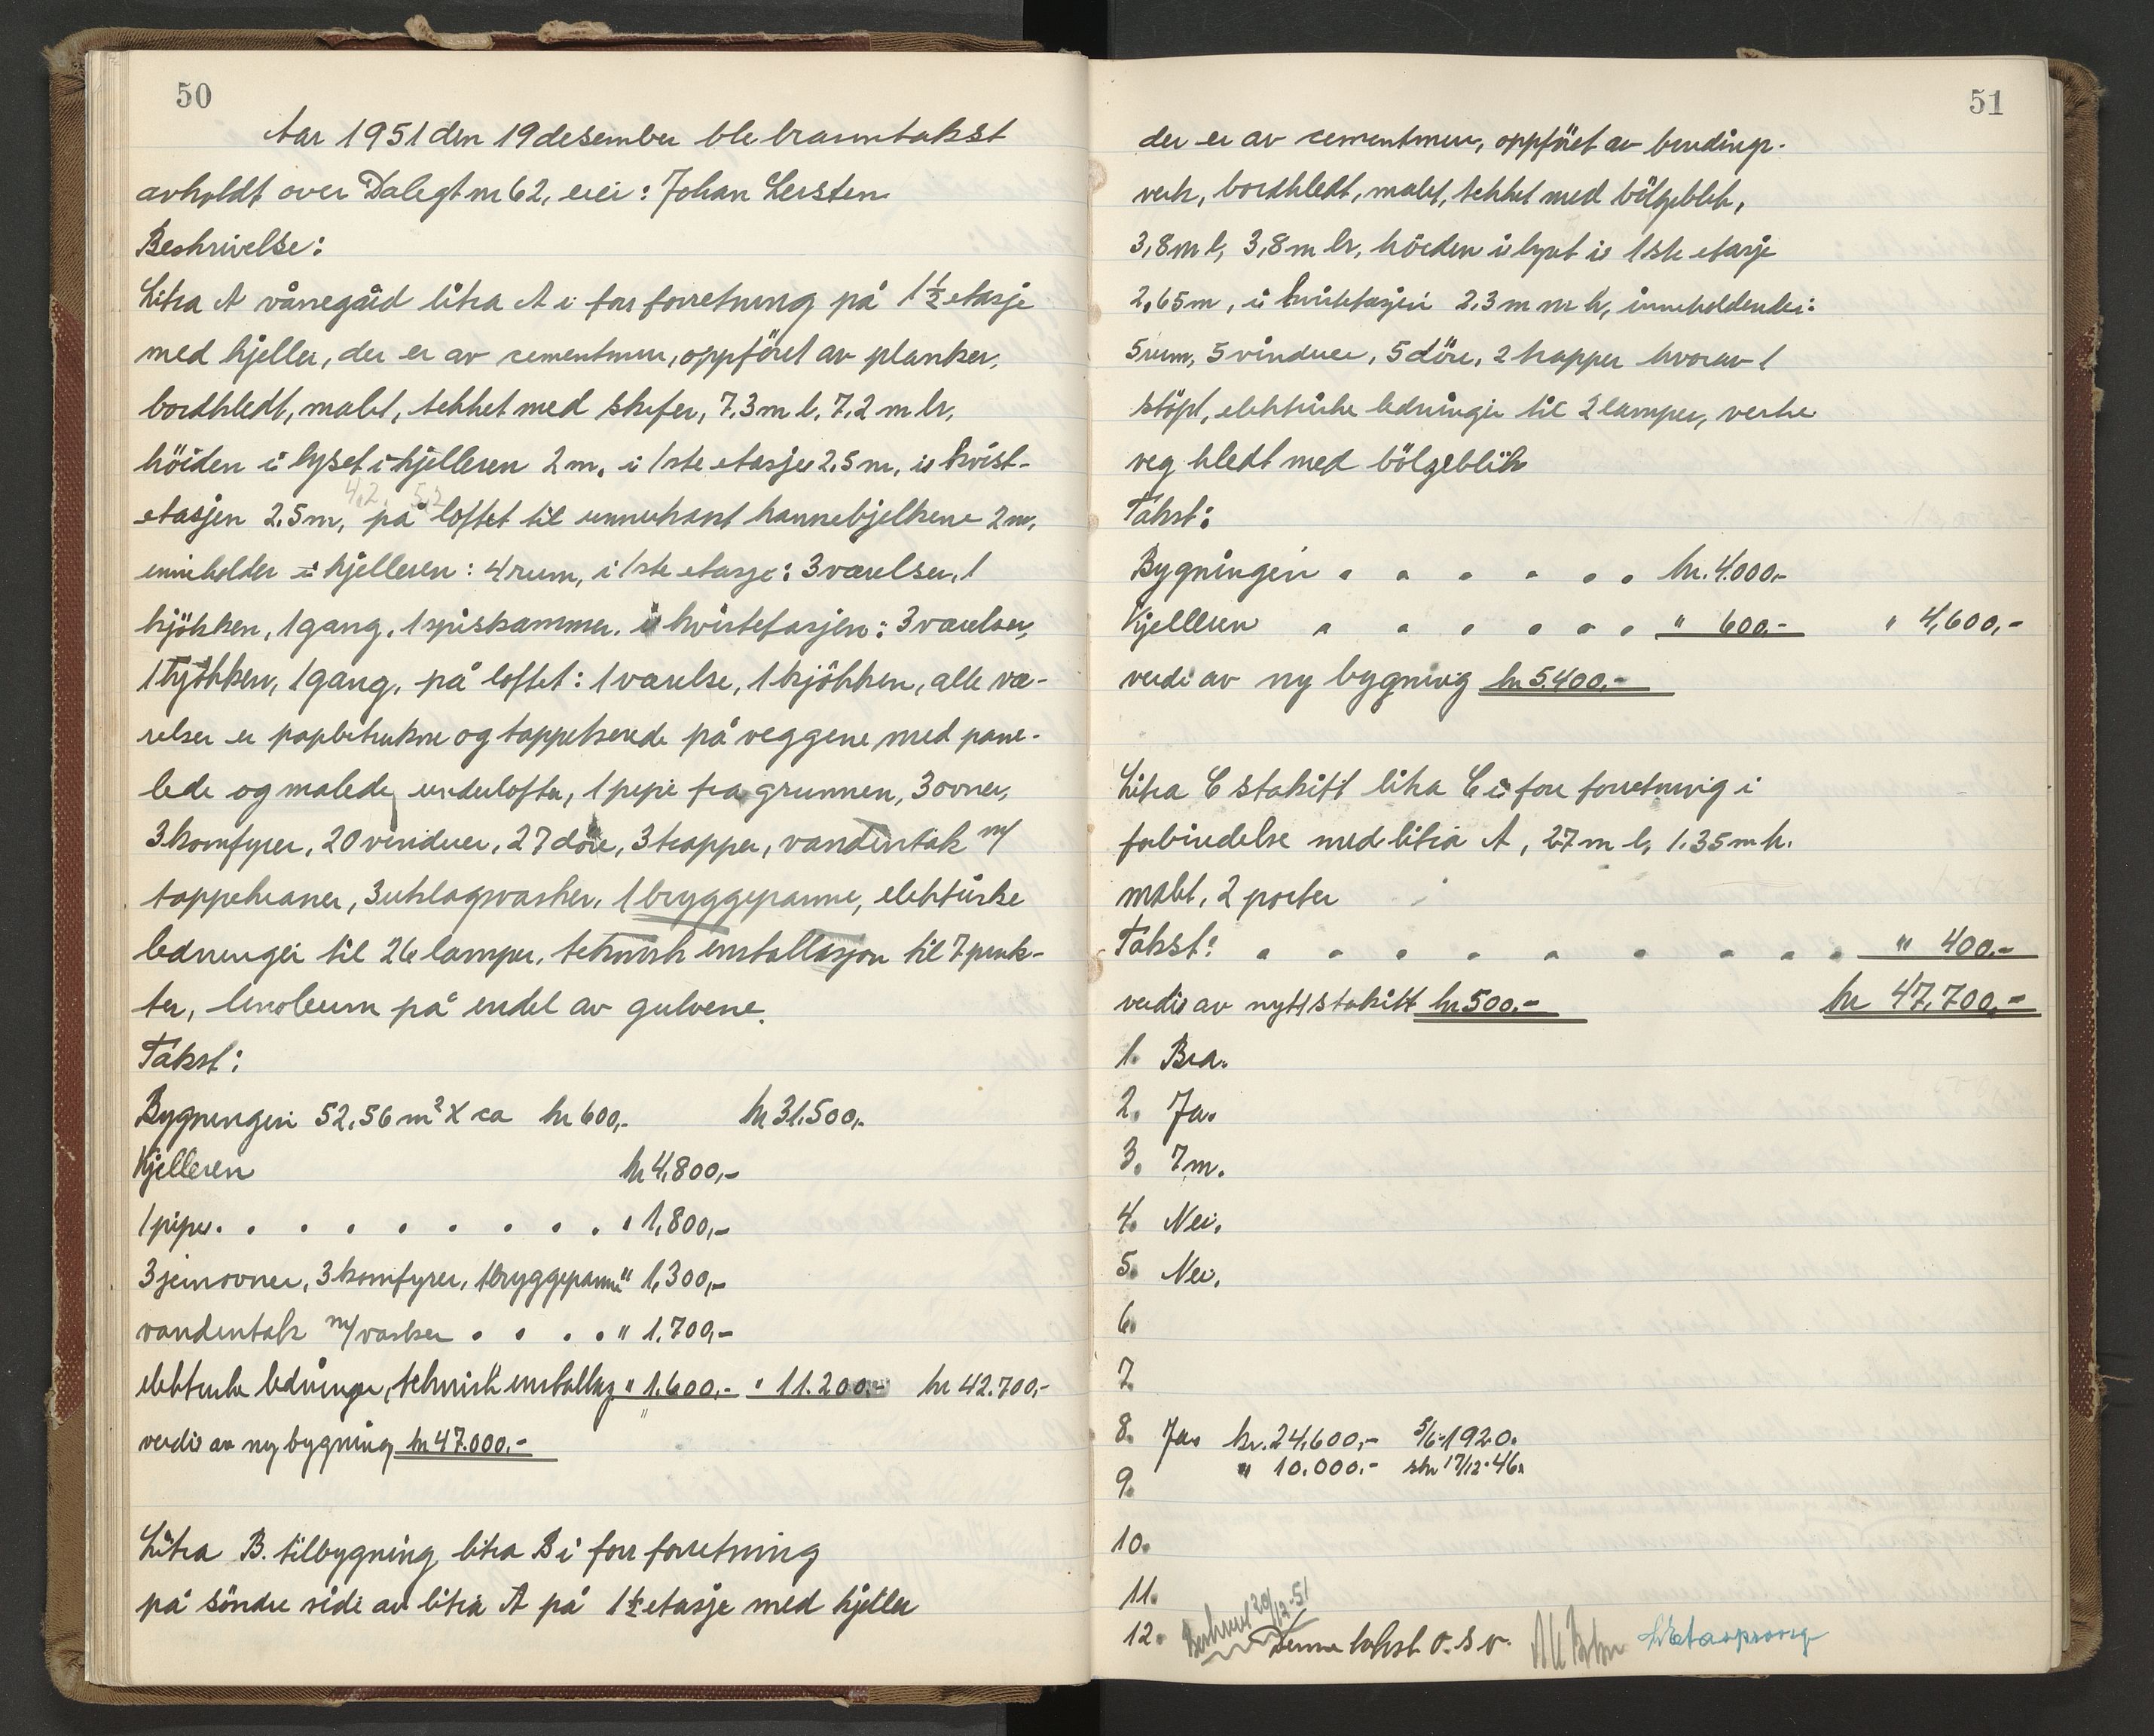 50
Aar 1951 den 19 desember ble branntakst
avholdt over Dalegt nr 62, eier: Johan Kersten
Beskrivelse:
Litra A vånegård litra A i forr forretning på 1½ etasje
med kjeller, der er av cementmur, oppföret av planker,
bordkledt, malet, tekket med skifer, 7.3 m l. 7.2 m br,
höiden i lyset i kjelleren 2 m, i 1ste etasje 2.5 m, i kvist-
4.2. 5.2
etasjen 2.5 m, på loftet til unnerkant hannebjelkene 2 m,
inneholder i kjelleren: 4 rum, i 1ste etasje: 3 værelser, 1
kjökken, 1 gang, 1 spiskammer. i kvistetasjen: 3 værelser,
1 kjökken, 1 gang, på loftet: 1 værelse, 1 kjökken, alle væ-
relser er papbetrukne og tappetserede på veggene med pane-
lede og malede underlofter, 1 pipe fra grunnen, 3 ovner,
3 komfyrer, 20 vinduer, 27 döre, 3 trapper, vandintak m/
tappekraner, 3 utslagsvasker, 1 bryggepanne, elektriske
ledninger til 26 lamper, teknisk installasjon til 7 punk-
ter, linoleum på endel av gulvene.
Takst:
Bygningen 52.56 m² x ca kr 600,- kr 31.500,-
Kjelleren kr 4,800,-
1 pipe . . . . . . . . " 1,800,-
3 jernovner, 3 komfyrer, 1 bryggepanne " 1,300,-
vandintak m/vasker . . . . " 1.700,-
elektriske ledninger, teknisk installasj " 1.600,- " 11.200,- kr 42.700,-
verdi av ny bygning kr 47.000,-
Litra B. tilbygning litra B i forr forretning
på söndre side av litra A på 1½ etasje med kjeller
51
der er av cementmur, oppföret av bindings-
verk, bordkledt, malet, tekket med bölgeblik,
3,8 m l, 3,8 m br, höiden i lyset i 1ste etasje
2,65 m, i kvistetasjen 2.3 m m h, inneholdende:
5 rum, 5 vinduer, 5 döre, 2 trapper hvorav 1
stöpt, elektriske ledninger til 2 lamper, vestre
veg kledt med bölgeblik
Takst:
Bygningen . . . . . . kr. 4.000,-
Kjelleren . . . . . . " 600,- " 4,600,-
verdi av ny bygning kr 5.400,-
Litra C stakitt litra C i forr forretning i
forbindelse med litra A, 27 m l, 1.35 m h.
malt, 2 porter
Takst: . . . . . . . . . " 400,-
verdi av nytt stakitt kr 500,- kr 47,700,-
1. Bra.
2. Ja.
3. 7 m.
4. Nei.
5. Nei.
6.
7.
8. Ja. kr. 24,600,- 5/6-1920.
" 10.000,- 17/12-46.
9.
10.
11.
12. Beskrevet 20/12-51 Denne takst o. s. v.